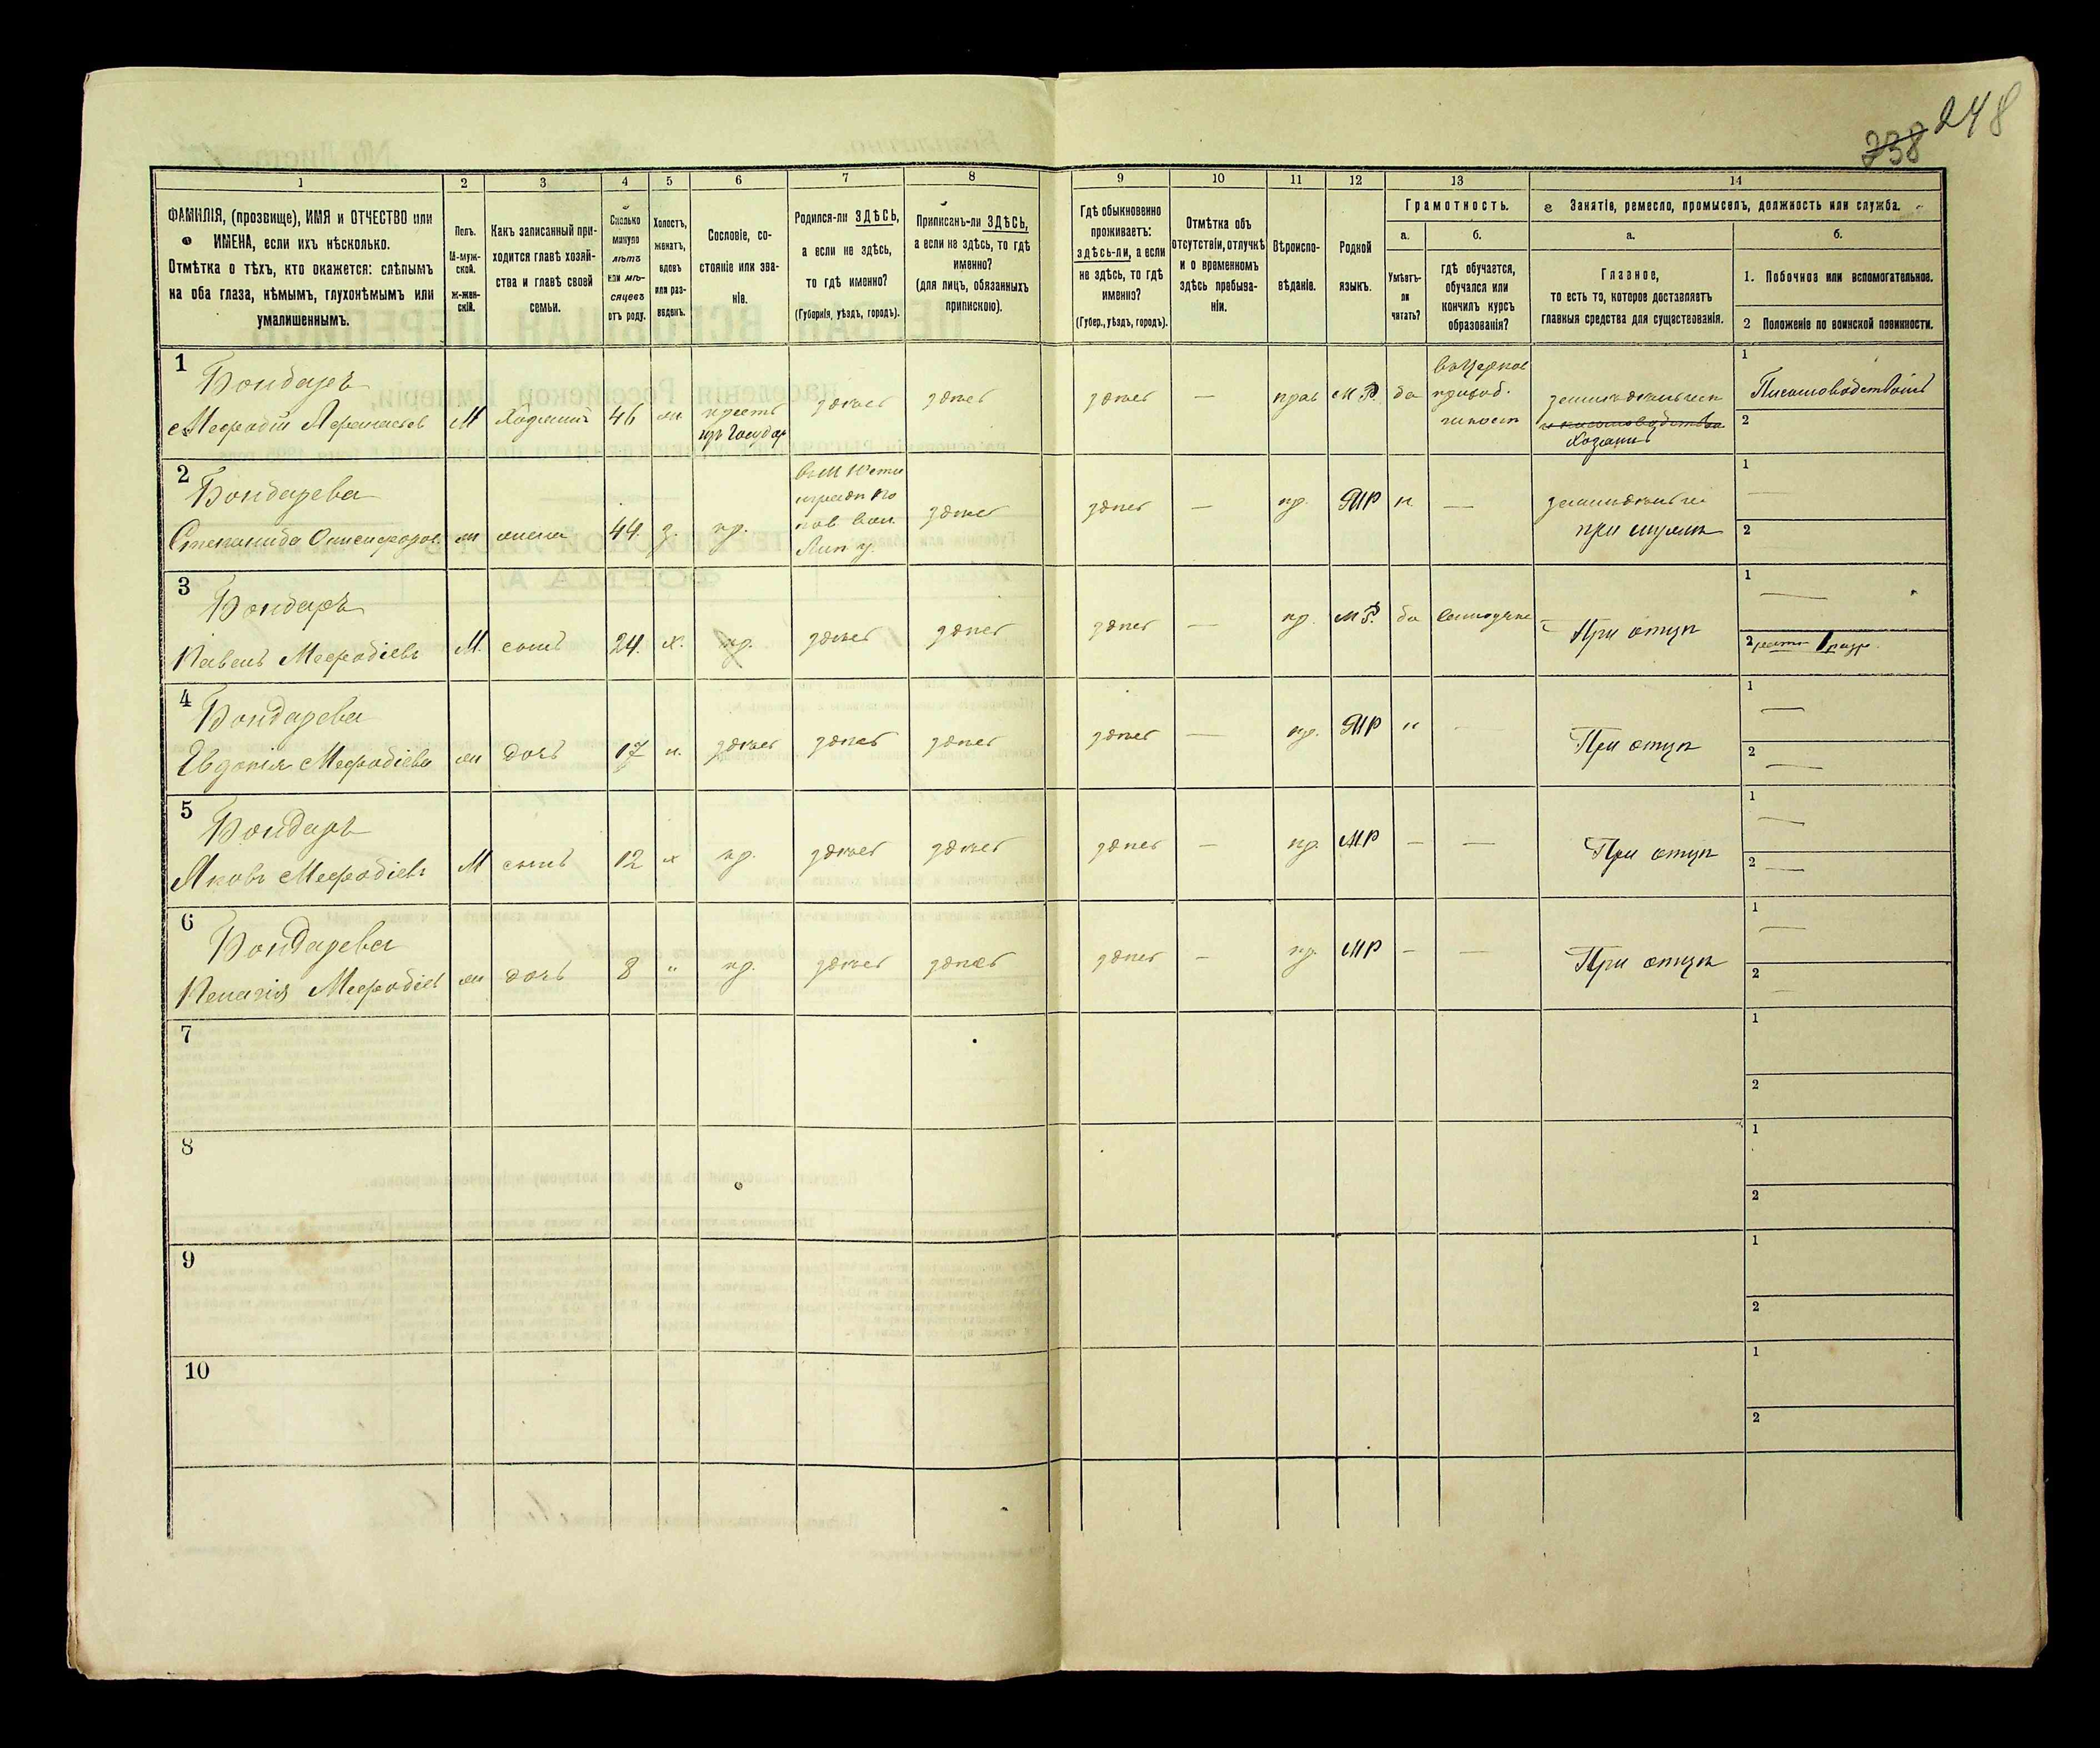 248
238
1 2 3 4 5 6 7 8 9 10 11 12 13 14
ФАМИЛІЯ, (прозвище), ИМЯ и ОТЧЕСТВО или
ИМЕНА, если ихъ нѣсколько.
Отмѣтка о тѣхъ, кто окажется: слѣпымъ
на оба глаза, нѣмымъ, глухонѣмымъ или
умалишеннымъ.
Полъ.
М-муж-
ской.
ж-жен-
скій.
Какъ записанный при-
ходится главѣ хозяй-
ства и главѣ своей
семьи.
Сколько
минуло
лѣтъ
или мѣ-
сяцевъ
отъ роду.
Холостъ,
женатъ,
вдовъ
или раз-
веденъ.
Сословіе, со-
стояніе или зва-
ніе.
Родился-ли ЗДѢСЬ,
а если не здѣсь,
то гдѣ именно?
(Губернія, уѣздъ, городъ).
Приписанъ-ли ЗДѢСЬ,
а если не здѣсь, то гдѣ
именно?
(для лицъ, обязанныхъ
припискою).
Гдѣ обыкновенно
проживаетъ:
здѣсь-ли, а если
не здѣсь, то гдѣ
именно?
(Губер., уѣздъ, городъ).
Отмѣтка объ
отсутствіи, отлучкѣ
и о временномъ
здѣсь пребыва-
ніи.
Вѣроиспо-
вѣданіе.
Родной
языкъ.
Грамотность.
а.
Умѣетъ-
ли
читать?
б.
гдѣ обучается,
обучался или
кончилъ курсъ
образованія?
Занятіе, ремесло, промыселъ, должность или служба.
а.
Главное,
то есть то, которое доставляетъ
главныя средства для существованія.
б.
1. Побочное или вспомогательное.
2 Положеніе по воинской повинности.
1
Бондарь
Мефодій Афанасьев М Хозяинъ 46 ж крест здесь здесь здесь — прав М.Р. да
Хозяинъ
1
Письмоводством
2
2
Бондарева
44. з. кр. здесь здесь — пр. МР н —
жена
Лип у.
1 —
2
3
Бондарь
Павелъ Мефодіевъ М. сынъ 24. х. кр. здесь здесь здесь — пр. М.Р. да
При отцѣ
1 —
2 1 разр.
4
Бондарева
Евдокія Мефодіева ж дочь 17 здесь здесь здесь здесь — пр. МР н —
При отцѣ
1 —
2 —
5
Бондарь
Яковъ Мефодіевъ М сынъ 12 х кр. здесь здесь здесь — пр. МР — —
При отцѣ
1 —
2 —
6
Бондарева
Мефодіев ж дочь 8 " кр. здесь здесь здесь — пр. МР — —
При отцѣ
1 —
2 —
7
1
2
8
1
2
9
1
2
10
1
2